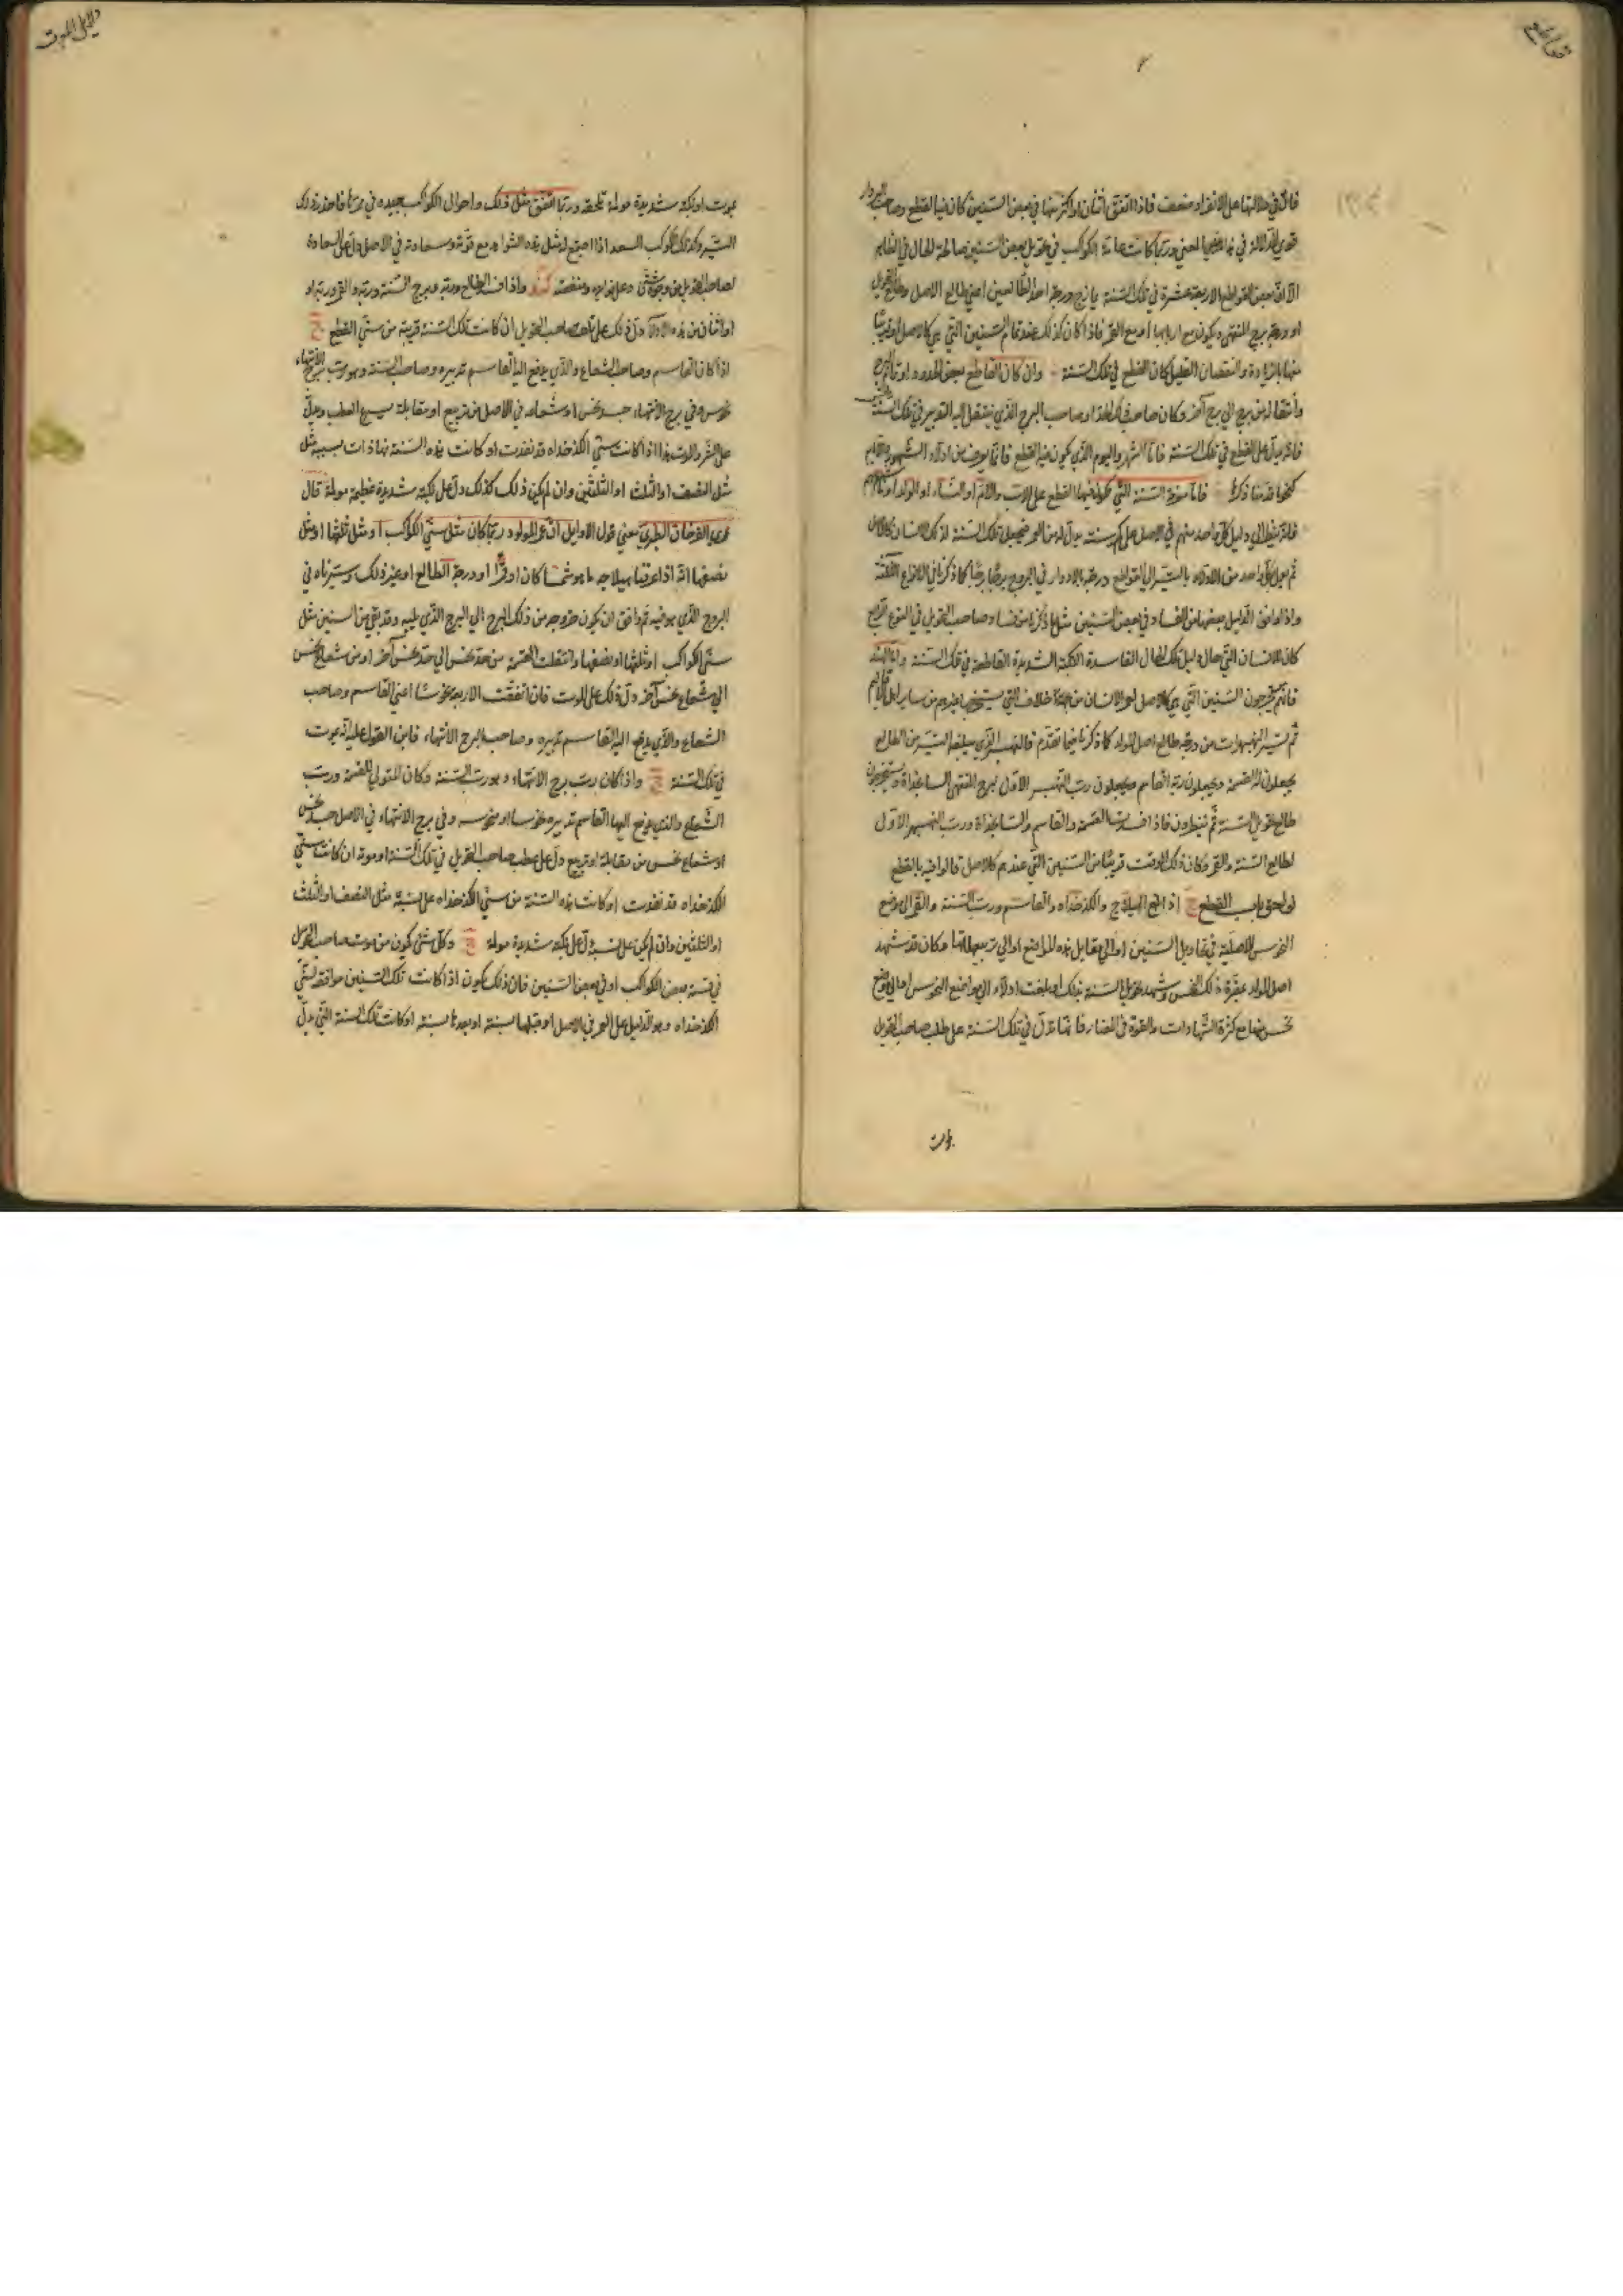 دلايل الموت
فان في دلالتها على الانفراد ضعف فاذا اتفق اثنان او اكثر منها في بعض السنين كان فيا القطع وصاحب
قوي الدلالة في هذا المعنى وربما كانت عامة الكواكب في تحويل بعض السنين صالحة الحال في الظاهر
الا ان بعض القواطع الاربعة عشرة في تلك السنة يمازج ودرجة احد الطالعين اعني طالع الاصل وطالع التحويل
او درجة برج المنتهى ويكون مع اربابها او مع القمر فاذا كان كذلك عند تمام السنين التي هي كالاصل او قريبا
منها بالزيادة والنقصان القليل كان القطع في تلك السنة وان كان القاطع بعض الحدود او
وانتقاله من برج الى برج آخر وكان صاحب ذلك الحد او صاحب البرج الذي ينتقل اليه التدبير في تلك السنة
فانه يدل على القطع في تلك السنة فاما الشهر واليوم الذي يكون فيه القطع فانما يعرف من ادلاء الشهور والايام
كنحو ما قدمنا ذكره فاما معرفة السنة التي يكون فيها القطع على الاب والام او النساء او الولد
فانه ينظر الى دليل كل واحد منهم في الاصل على كم سنة يدل له من العمر فيجعل تلك السنة لذلك الانسان كالاصل
ثم يعمل بكل واحد من الادلاء بالتسيير الى القواطع درجة بالادوار في البروج برجا برجا كما ذكرنا في الانواع الثلثة
واذا وافق الدليل بعضها من الفساد في بعض السنين مثل ما ذكرنا من فساد صاحب التحويل في النوع الرابع
كان للانسان التي حال دليل تلك الحال الفاسدة النكبة الشديدة القاطعة في تلك السنة واما الهند
فانهم يستخرجون السنين التي هي كالاصل لعمر الانسان من جهة خلاف التي يستخرجها غيرهم من ساير اهل الاقاليم
ثم تسير النهبهرات من درجة طالع اصل المولد كما ذكرنا فيما تقدم فالنهبهر الذي يبلغه التسيير من الطالع
يجعلون له القسمة ويجعلون ربه القاسم ويجعلون رب النهبهر الاول لبرج المنتهى السالخداة ويستخرجون
طالع تحويل السنة ثم ينظرون فاذا فسدت القسمة والقاسم والسالخداة ورب النهبهر الاول
لطالع السنة والقمر وكان ذلك الوقت قريبا من السنين التي عندهم كالاصل قالوا فيه بالقطع
لواحق باب القطع اذا بلغ الهيلاج والكدخداه والقاسم ورب السنة والقمر الى موضع
النحوس الاصلية في تحاويل السنين او الى مقابل هذه المواضع او الى تربيعها وكان قد شهد
اصل المولد بمقره ذلك النحس وشهد تحويل السنة بذلك او بلغت ادلاء الى مواضع النحوس او الى موضع
نحس منها مع كثرة الشهادات والقوة في المضار فانها تدل في تلك السنة على عطب صاحب التحويل
يموت او نكبة شديدة مولمة تلحقه وربما اتفق مثل ذلك واحوال الكواكب جيدة في
التسيير وكذلك الكوكب السعد اذا اجتمع له مثل هذه الشواهد مع قوته وسعادته في الاصل دل على السعادة
لصاحب التحويل من وجوه شتى وعلى فوايد ومنفعة واذا فسد الطالع وربه وبرج السنة وربه والقمر وربه او
او اثنان من هذه الادلاء دل ذلك على صاحب التحويل ان كانت تلك السنة قريبة من سني القطع
اذا كان القاسم وصاحب الشعاع والذي يدفع اليه القاسم تدبيره وصاحب السنة وهو رب برج الانتهاء
نحوس وفي برج الانتهاء جسد نحس او شعاعه في الاصل من تربيع او مقابلة سريع العطب ويدل
على الشر والموت هذا اذا كانت سني الكدخداه قد نفدت او كانت هذه السنة منها ذات نسبة مثل
مثل النصف او الثلث او الثلثين وان لم يكن ذلك كذلك دل على نكبة شديدة عظيمة مولمة قال
عمر بن الفرخان الطبري معنى قول الاوايل ان عمر المولود ربما كان مثل سني الكواكب او مثل ثلثها او مثل
نصفها انه اذا عرفنا هيلاجه ما هو شمسا كان او قمرا او درجة الطالع او غير ذلك وسيرناه في
البروج الذي هو فيه ثم وافق ان يكون خروجه من ذلك البرج الى البرج الذي يليه وقد بقي من السنين مثل
سني الكواكب او ثلثها او نصفها وانتقلت القسمة من حد نحس الى حد نحس آخر او من شعاع نحس
الى شعاع نحس آخر دل ذلك على الموت فان اتفقت الاربعة نحوسا اعني القاسم وصاحب
الشعاع والذي يدفع اليه القاسم تدبيره وصاحب البرج الانتهاء فابن القول عليه انه يموت
في تلك السنة واذا كان رب برج الانتهاء وهو رب السنة وكان المتولي للقسمة ورب
الشعاع والذي يدفع اليها القاسم تدبيره نحوسا او منحوسه وفي برج الانتهاء في الاصل جسد نحس
او شعاع نحس من مقابلة او تربيع دل على عطب صاحب التحويل في تلك السنة او موته ان كانت سني
الكدخداه قد نفدت او كانت هذه السنة من سني الكدخداه على نسبة مثل النصف او الثلث
او الثلثين وان لم يكن على نسبة دل على نكبة شديدة مولمة وكل شئ يكون من موت صاحب التحويل
في قسمة بعض الكواكب او في بعض السنين فان ذلك يكون اذا كانت تلك السنين موافقة لسني
الكدخداه وهو الدليل على العمر في الاصل او قبلها بسنة او بعدها بسنة او كانت تلك السنة التي يدل